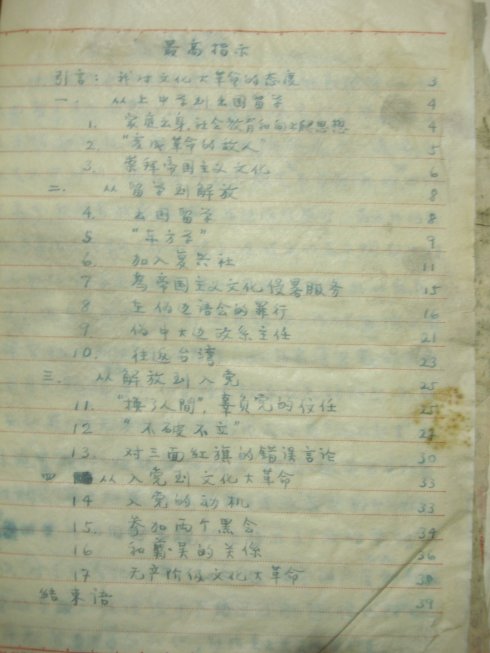 最高指示
引言：我对文化大革命的态度 3
一. 从上中学到出国留学 4
1. 家庭出身,社会教育和向上爬思想 4
2. "变成革命的敌人" 5
3. 崇拜帝国主义文化 6
二. 从留学到解放 8
4. 出国留学 8
5 "东方学" 9
6 加入复兴社 11
7 为帝国主义文化侵畧服务 15
8 在伪边语会的罪行 16
9 伪中大边政系主任 21
10. 往返台湾 23
三. 从解放到入党 25
11. "换了人间", 辜负党的信任 25
12 "不破不立" 27
13. 对三面红旗的错误言论 30
四 从入党到文化大革命 33
14 入党的动机 33
15. 参加两个黑会 34
16 和 吴的关系 36
17 无产阶级文化大革命 38
结束语 39